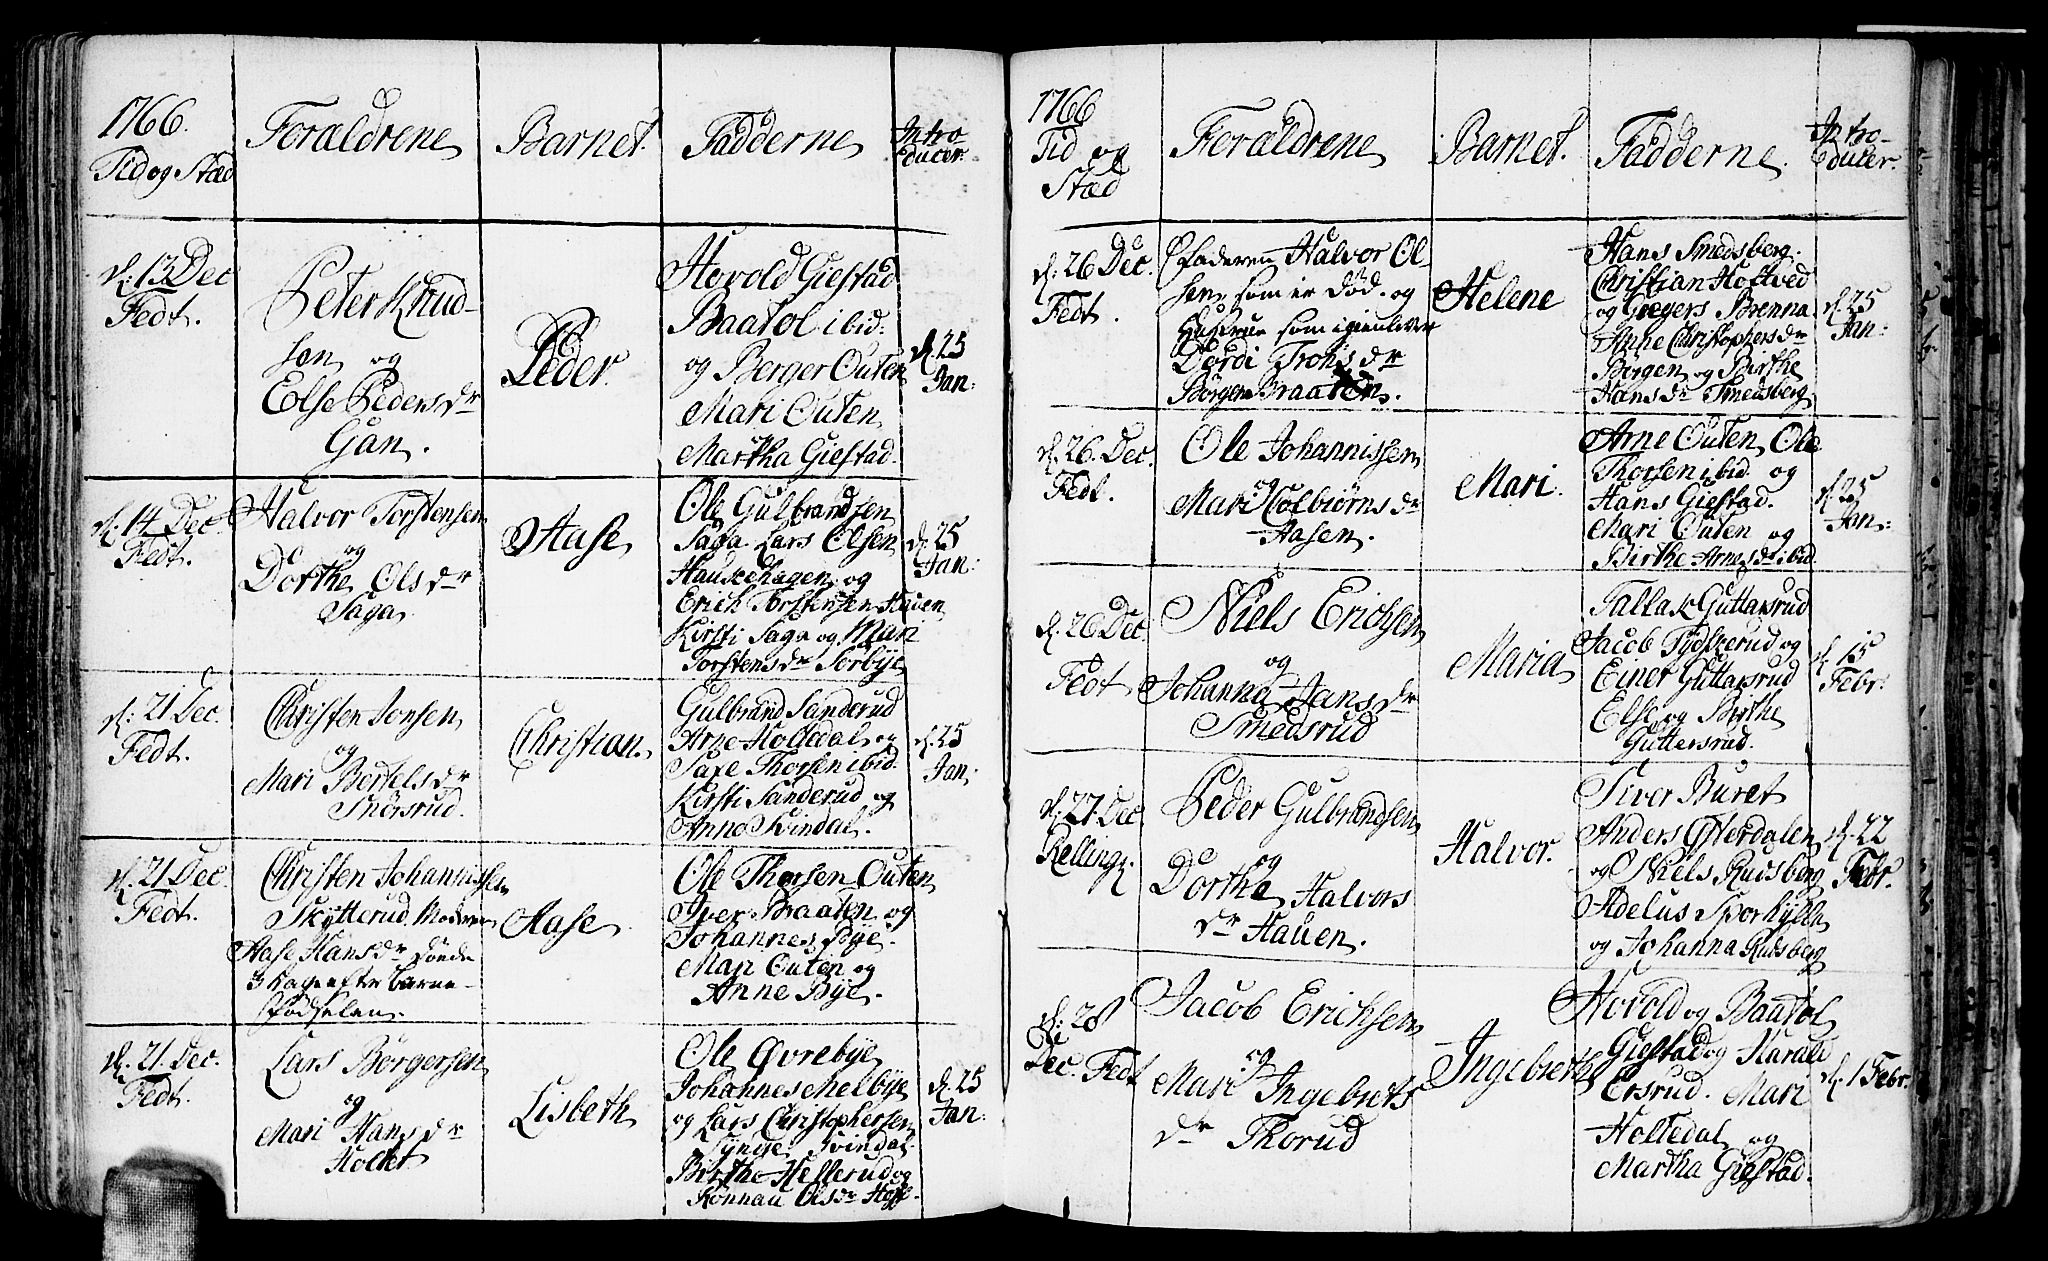 1766.
Tid og Stæd
Foræld​rene
Barnet.
Fadderne
Intro
ducer.
d: 13 Dec
Fedt.
Peter Knud-
sen og
Else Peders dr
Gan.
Peder.
Hovold Giestad
Baatol ibid:
og Berger Outen
Mari Outen
Martha Giestad.
d. 25
Jan:
d: 14 Dec.
Fedt.
Halvor Torstensen
og
Dorthe Ols dr
Saga.
Aase
Ole Gulbrandsen
Saga Lars Olsen
Hauschagen og
Erich Torstensen Hauen
Kirsti Saga og Mari
Torstens dr Sorbye
d. 25
Jan:
d: 21 Dec.
Fedt.
Christen Jonsen
og
Mari Bertels dr
Snorsrud.
Christian
Gulbrand Sanderud
Arne Holtedal og
Saxe Thorsen ibid.
Kirsti Sanderud og
Anne Svindal.
d. 25
Jan:
d. 21 Dec.
Fedt.
Christen Johannissen
Skytterud Moderen
Aase Hans dr døede
3 Dage efter Barne-
fødselen.
Aase.
Ole Thorsen Outen
Iver Braaten og
Johannes Bye.
Mari Outen og
Anne Bye.
d. 21. Dec.
Fedt.
Lars Børgersen
og
Mari Hans dr
Holter
Lisbeth
Ole Øvrebye
Johannes Melbye
og Lars Christophersen
Synge Svindal
Birthe Hellerud og
Rønnau Ols dr
d. 25
Jan:
1766
Tid og
Stæd
Forældrene
Barnet.
Fadderne.
Intro-
ducer.
d: 26 Dec.
Fedt.
Faderen Halvor Ol-
sen som er død. og
Hustrue som igienlever
Dordi Trons dr
Børgen Braaten.
Helene
Hans Smedsberg.
Christian Hoftved
og Gregers Brenna
Anne Christophers dr
Børgen og Birthe
Hans dr Smedsberg
d. 25
Jan:
d. 26. Dec.
Fedt.
Ole Johannissen
og
Mari Colbiørns dr
Aasen.
Mari.
Arne Outen, Ole
Thorsen ibid og
Hans Giestad.
Mari Outen og
Birthe Arnes dr ibid
d. 25
Jan:
d. 26 Dec.
Fedt.
Niels Erichsen
og
Johanna Jans dr
Smedsrud
Maria
Tallak Guttersrud
Jacob Tydserud og
Einer Guttersrud
Else og Birthe
Guttersrud.
d. 15
Febr.
d. 27 Dec.
Kelling.
Peder Gulbrandsen
og
Dorthe Halvors
dr Hauen.
Halvor.
Siver Buret
Anders Østerdalen
og Niels Rudsberg
Adelus Sporhylle
og Johanna Rudsberg
d. 22
Febr.
d: 28
Dec. Fedt
Jacob Erichsen
og
Mari Ingebrets
dr Thorud
Ingebreth
Hovold og Baatol
Giestad og Harald
Ersrud. Mari
Holtedal og
Martha Giestad.
d. 1 Febr.